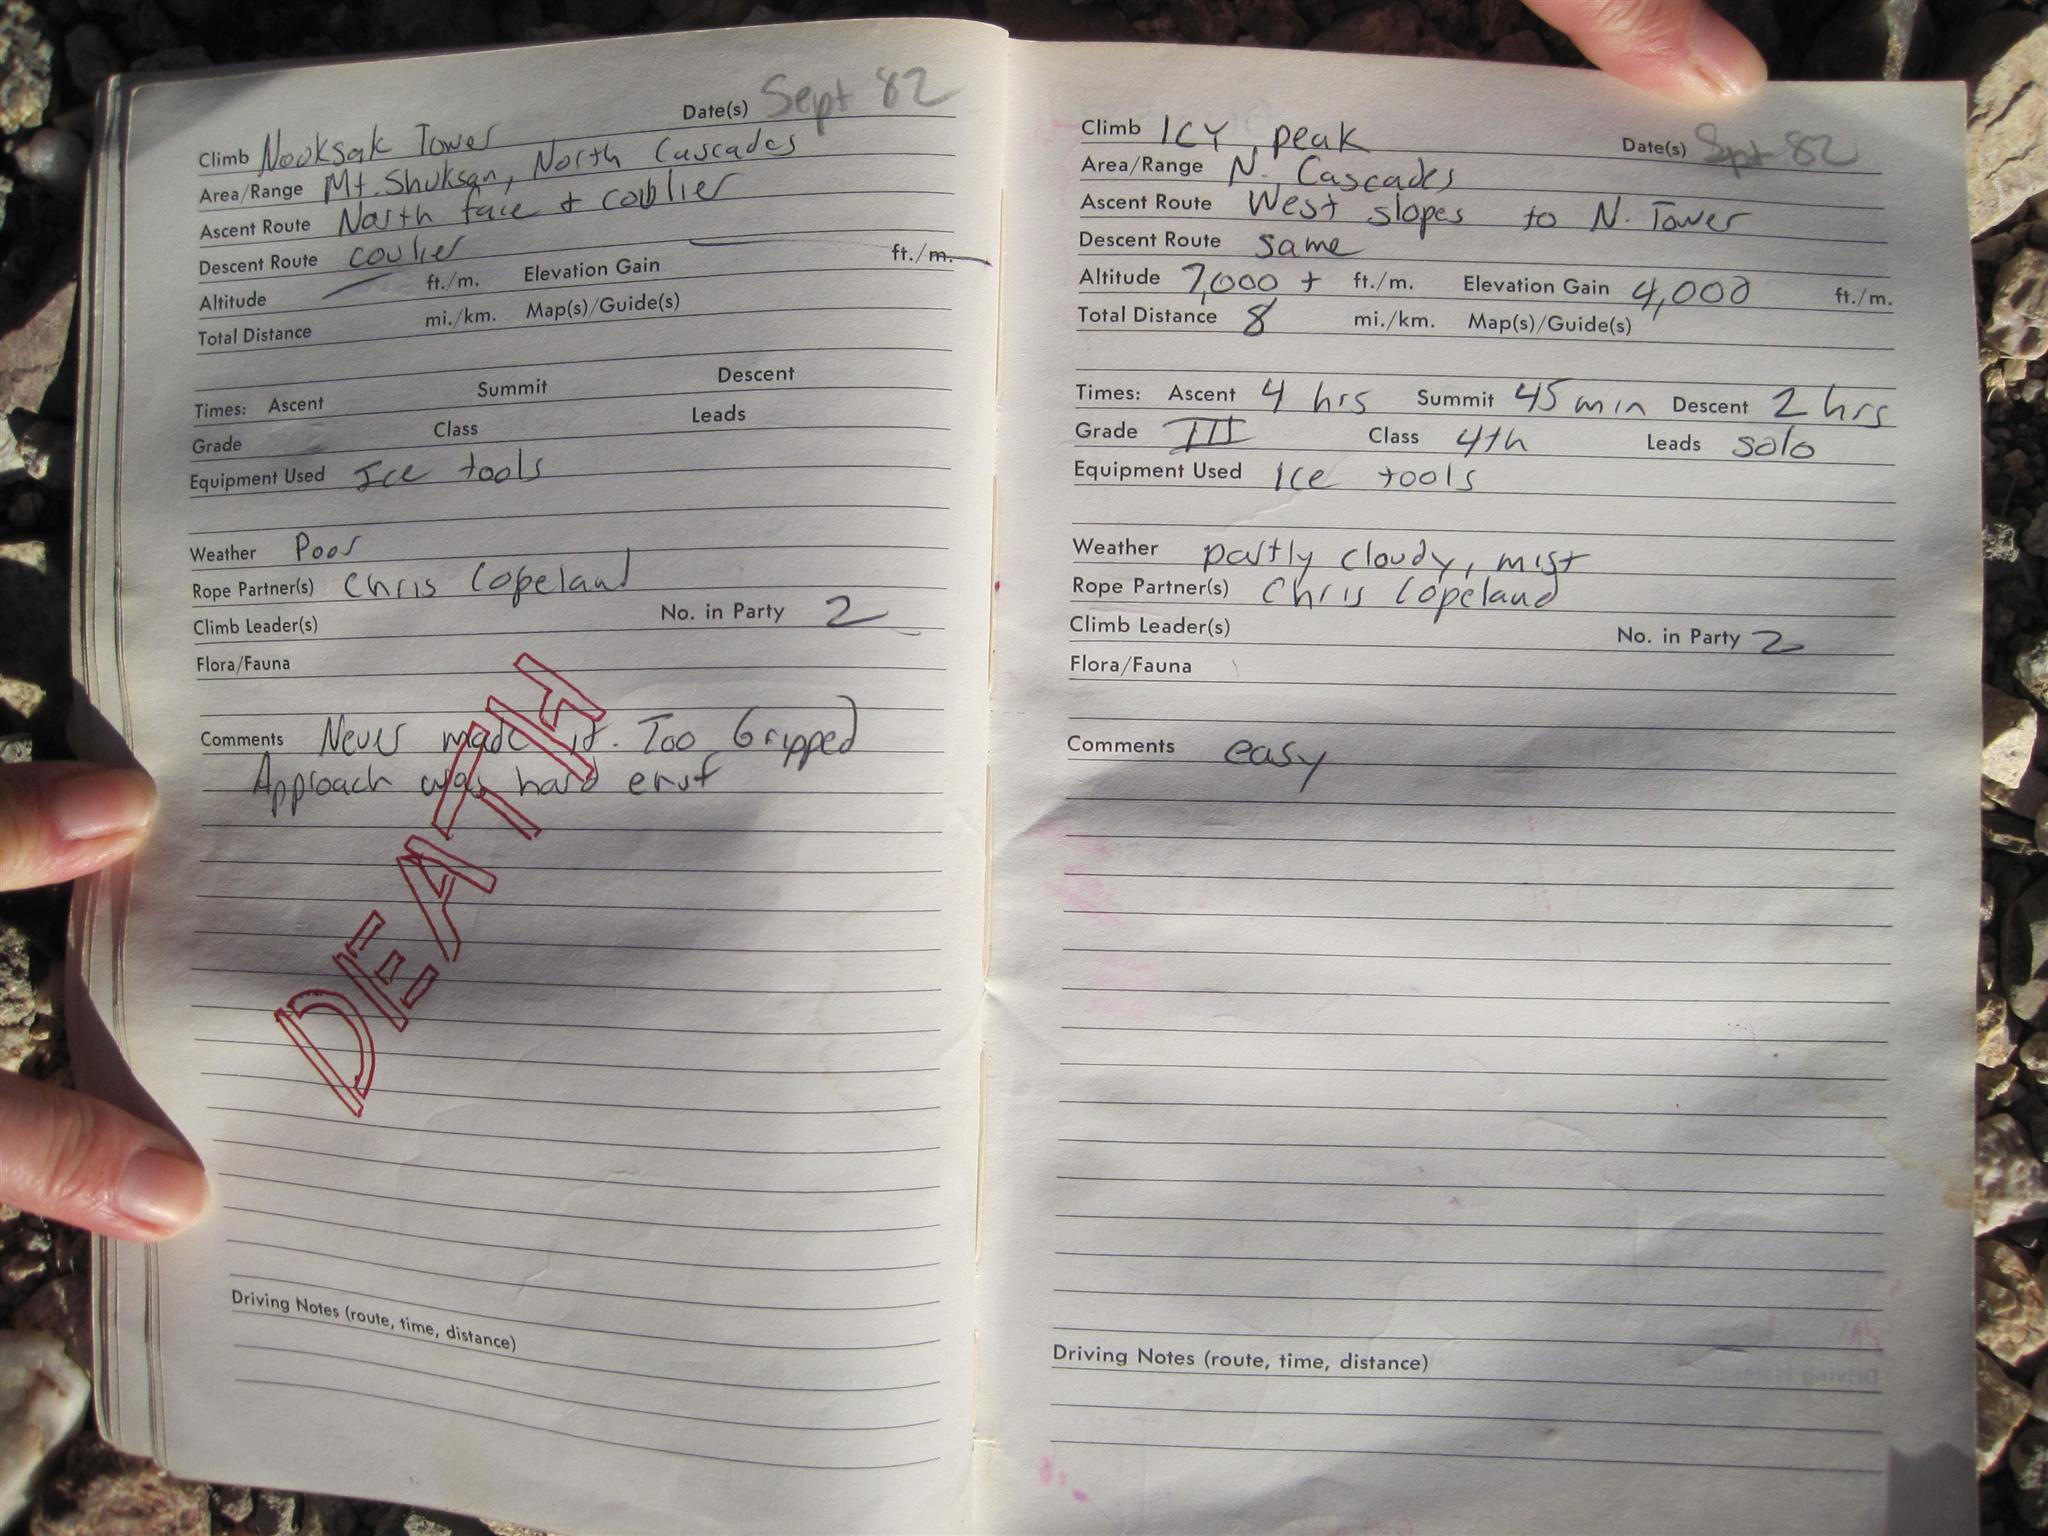 Date(s) Sept 82
Climb Nooksak Tower
Area/Range Mt. Shuksan, North Cascades
Ascent Route North face + coulier
Descent Route coulier
Altitude ft./m. Elevation Gain ft./m.
Total Distance mi./km. Map(s)/Guide(s)
Times: Ascent Summit Descent
Grade Class Leads
Equipment Used Ice tools
Weather Poor
Rope Partner(s) Chris Copeland
Climb Leader(s) No. in Party 2
Flora/Fauna
Comments Never made it. Too Gripped
Approach was hard enuf
DEATH
Driving Notes (route, time, distance)
Climb ICY peak Date(s) Sept 82
Area/Range N. Cascades
Ascent Route West slopes to N. Tower
Descent Route same
Altitude 7,000 + ft./m. Elevation Gain 4,000 ft./m.
Total Distance 8 mi./km. Map(s)/Guide(s)
Times: Ascent 4 hrs Summit 45 min Descent 2 hrs
Grade III Class 4th Leads solo
Equipment Used Ice tools
Weather partly cloudy, mist
Rope Partner(s) Chris Copeland
Climb Leader(s) No. in Party 2
Flora/Fauna
Comments easy
Driving Notes (route, time, distance)